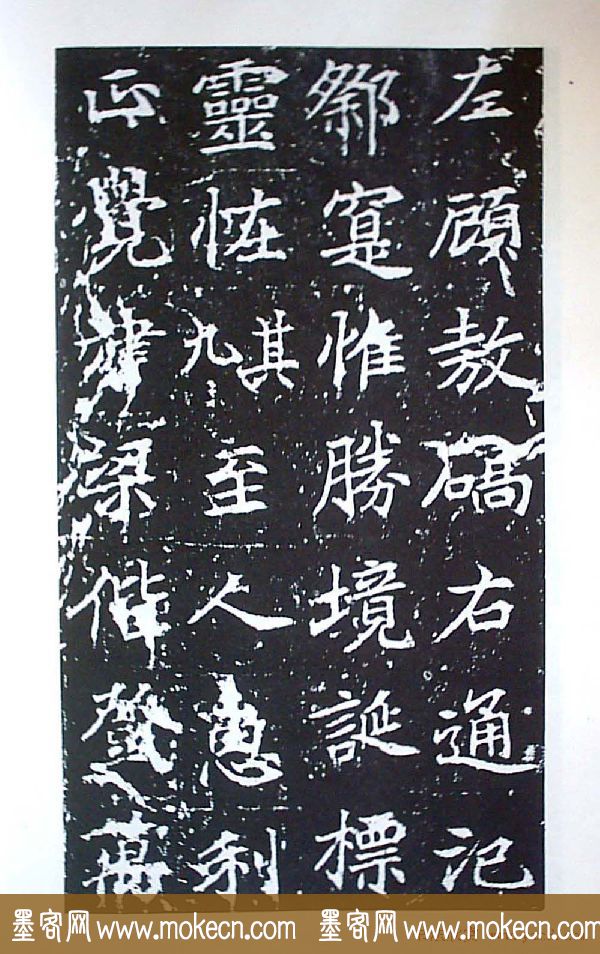 左顧敖碻右通汜
鄒寔惟勝境誕標
靈恠其九至人惠利
正覺津梁偕登萬
墨客网 www.mokecn.com 墨客网 www.mokecn.com